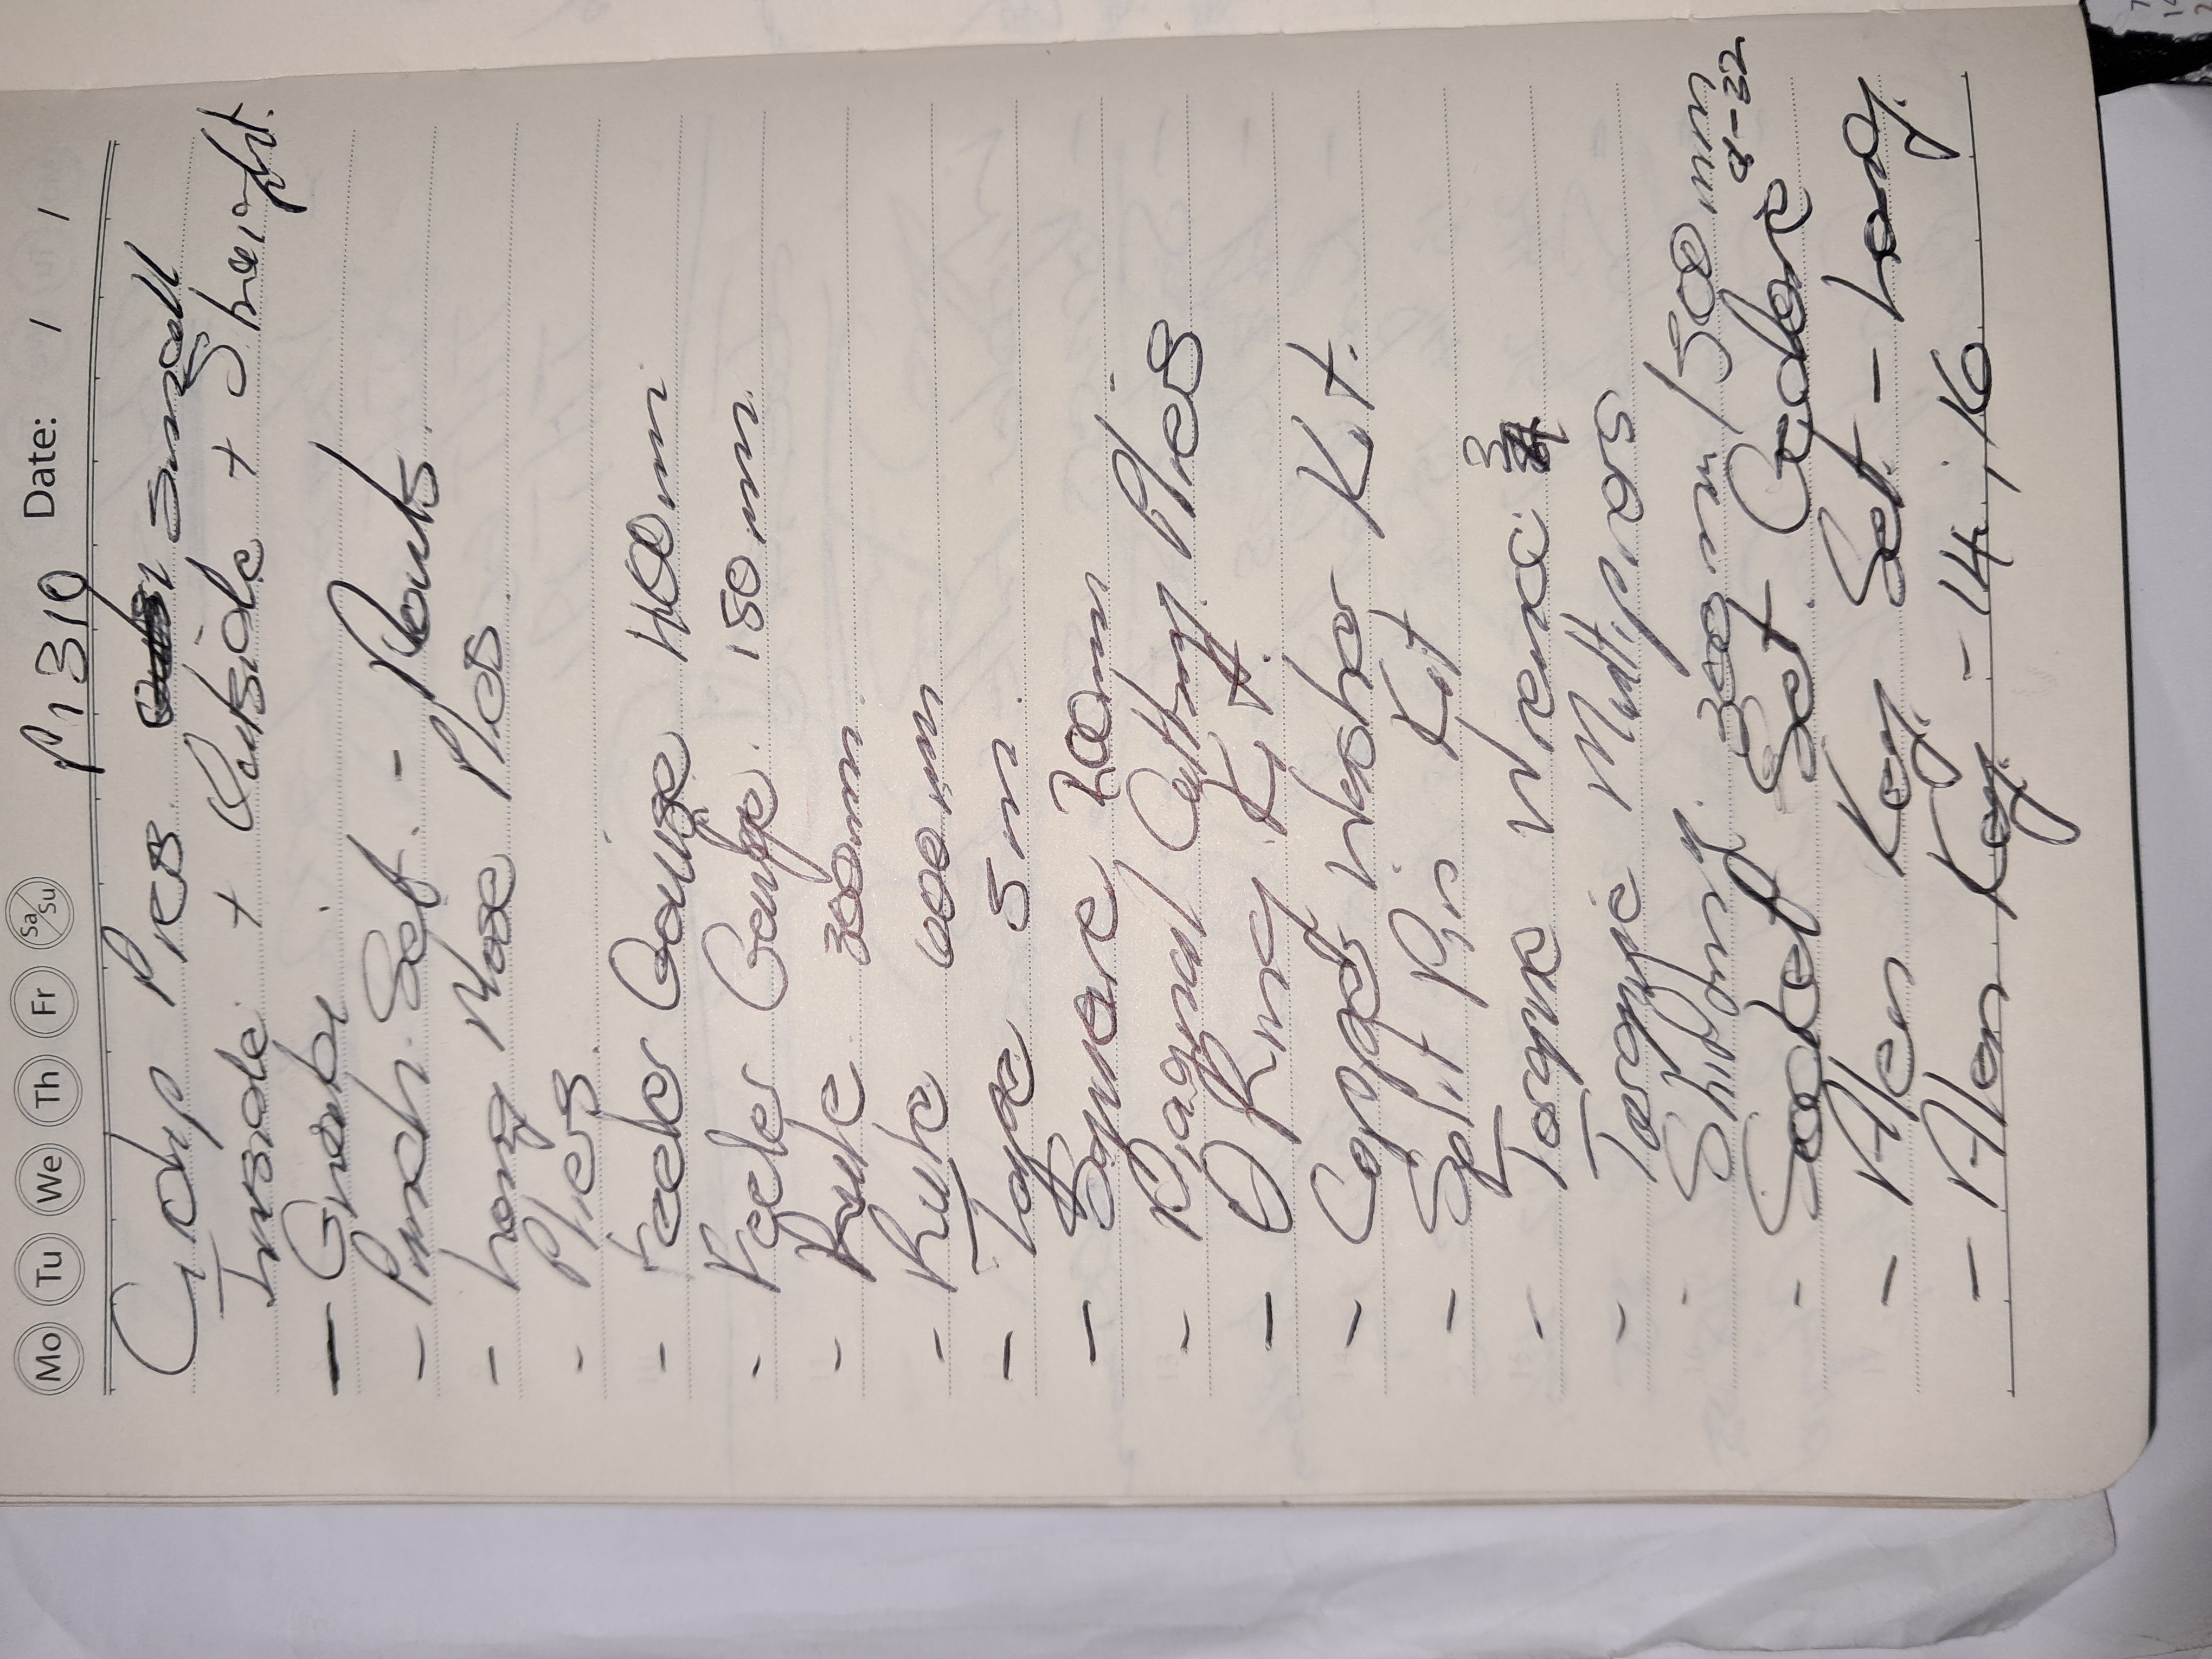 Mo Tu We Th Fr Sa/Su Date: / /
P1310
Circlip Pliers small
Inside + Outside + Straight.
- Grinder
- Punch Set. -
- Long Nose Pliers
- Pliers.
- Feeler Gauge 400mm
- Feeler Gauge. 150mm.
- Rule 300mm.
- Rule 600mm
- Tape 5m.
- Square 200mm
- Diagnal Cutting Pliers
- O Ring Kit.
- Copper Washer Kit.
- Split Pin Kit
- Torque Wrenc 3/4
- Torque
- 300mm / 500mm
- Socket Set. Gedore 8-32
- Alen Key Set. - Long.
- Alen Key. - 14 ; 16